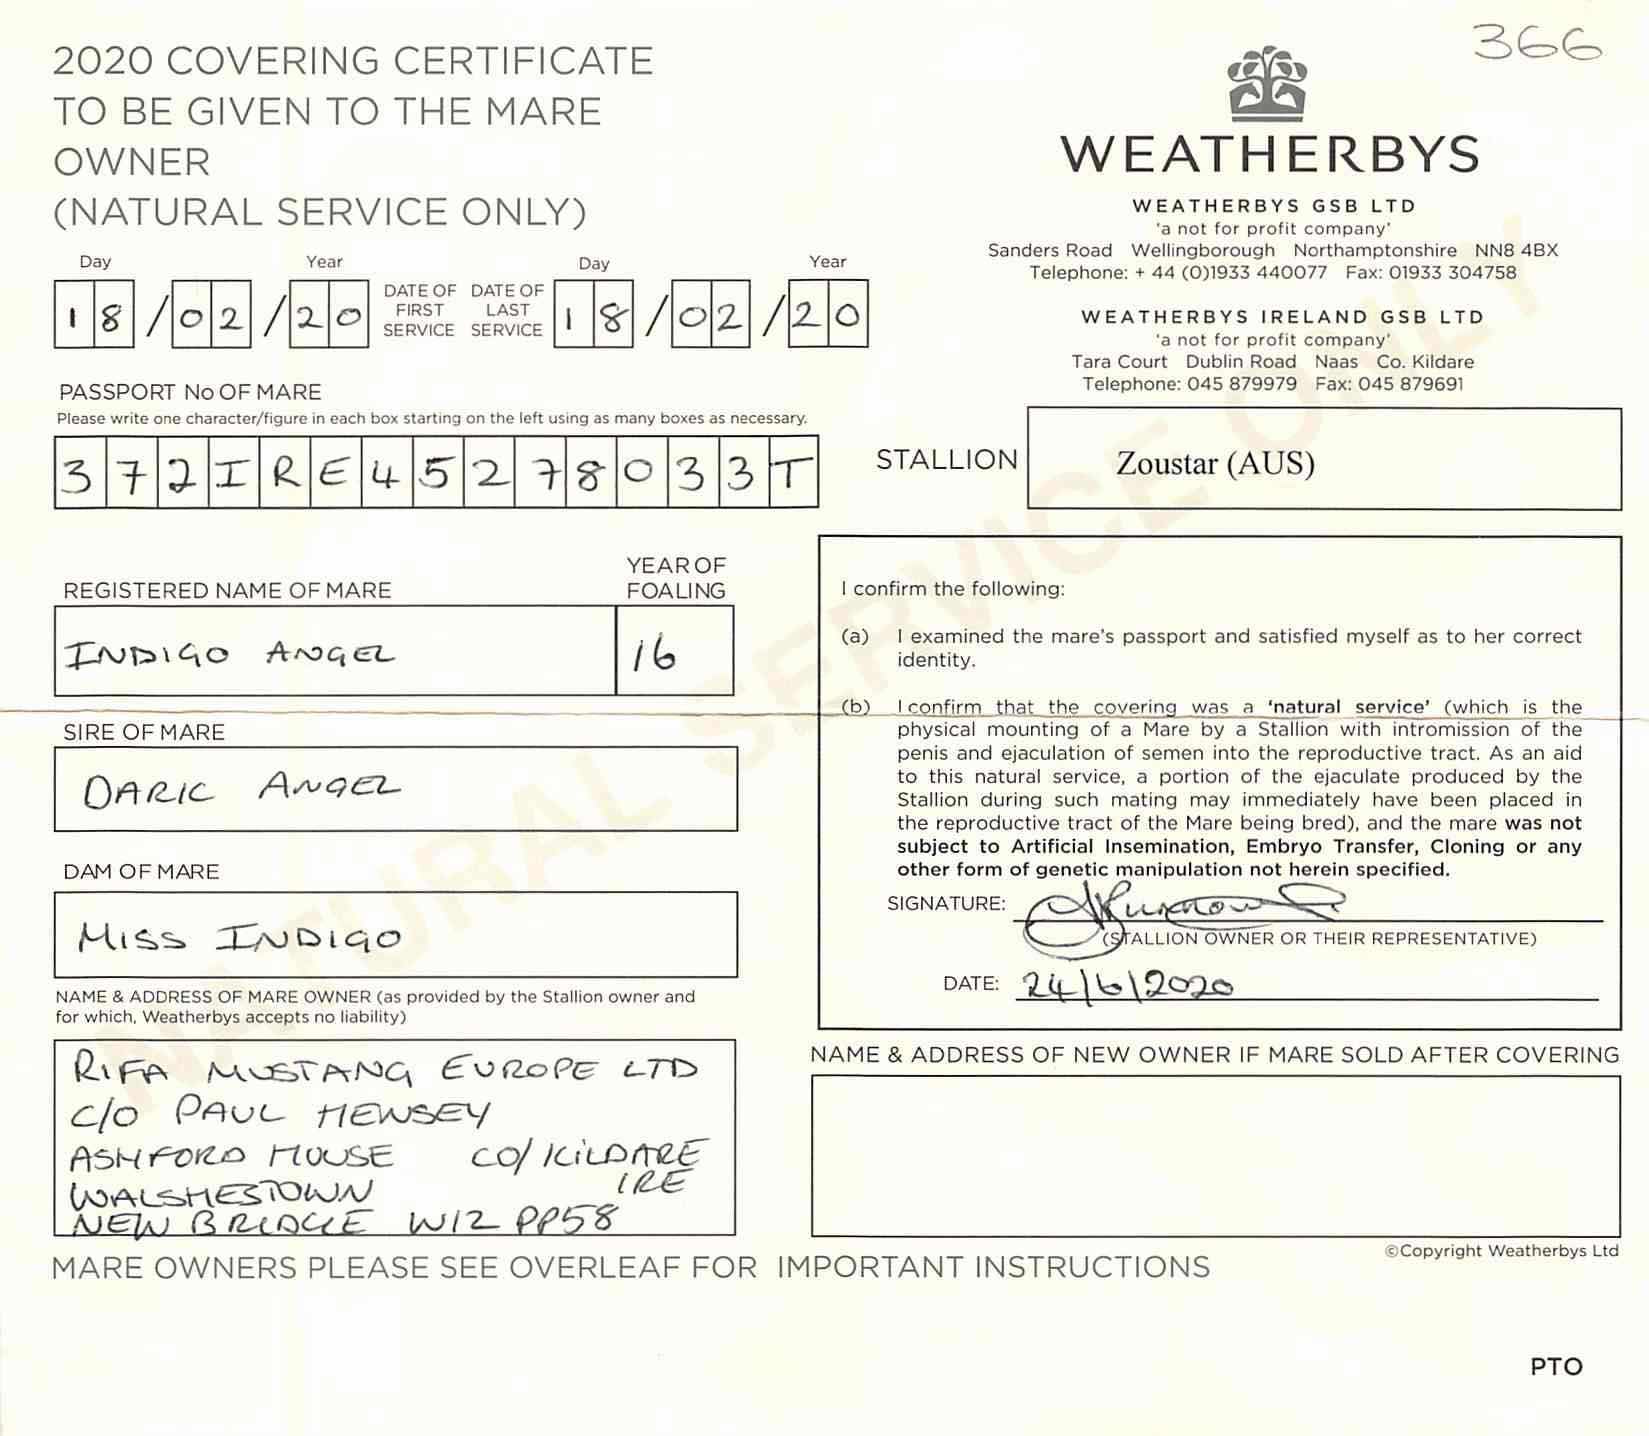 366
2020 COVERING CERTIFICATE
TO BE GIVEN TO THE MARE
OWNER
(NATURAL SERVICE ONLY)
WEATHERBYS
WEATHERBYS GSB LTD
'a not for profit company'
Sanders Road Wellingborough Northamptonshire NN8 4BX
Telephone: + 44 (0)1933 440077 Fax: 01933 304758
WEATHERBYS IRELAND GSB LTD
'a not for profit company'
Tara Court Dublin Road Naas Co. Kildare
Telephone: 045 879979 Fax: 045 879691
Day Year Day Year
18/02/20 DATE OF FIRST SERVICE DATE OF LAST SERVICE 18/02/20
PASSPORT No OF MARE
Please write one character/figure in each box starting on the left using as many boxes as necessary.
372IRE45278033T
STALLION Zoustar (AUS)
REGISTERED NAME OF MARE YEAR OF FOALING
INDIGO ANGEL 16
SIRE OF MARE
DARIC ANGEL
DAM OF MARE
MISS INDIGO
NAME & ADDRESS OF MARE OWNER (as provided by the Stallion owner and
for which, Weatherbys accepts no liability)
RIFA MUSTANG EUROPE LTD
C/O PAUL HENSEY
ASHFORD HOUSE CO/KILDARE
WALSHESTOWN IRE
NEW BRIDGE W12 PP58
I confirm the following:
(a) I examined the mare's passport and satisfied myself as to her correct
identity.
(b) I confirm that the covering was a 'natural service' (which is the
physical mounting of a Mare by a Stallion with intromission of the
penis and ejaculation of semen into the reproductive tract. As an aid
to this natural service, a portion of the ejaculate produced by the
Stallion during such mating may immediately have been placed in
the reproductive tract of the Mare being bred), and the mare was not
subject to Artificial Insemination, Embryo Transfer, Cloning or any
other form of genetic manipulation not herein specified.
SIGNATURE:
(STALLION OWNER OR THEIR REPRESENTATIVE)
DATE: 24/6/2020
NAME & ADDRESS OF NEW OWNER IF MARE SOLD AFTER COVERING
©Copyright Weatherbys Ltd
MARE OWNERS PLEASE SEE OVERLEAF FOR IMPORTANT INSTRUCTIONS
PTO
NATURAL SERVICE ONLY